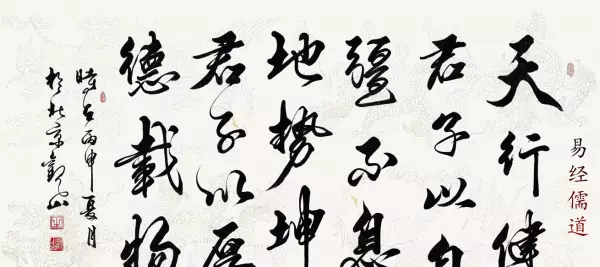 易经儒道
天行健
君子以自
彊不息
地勢坤
君子以厚
德載物
時在丙申夏月
於北京山